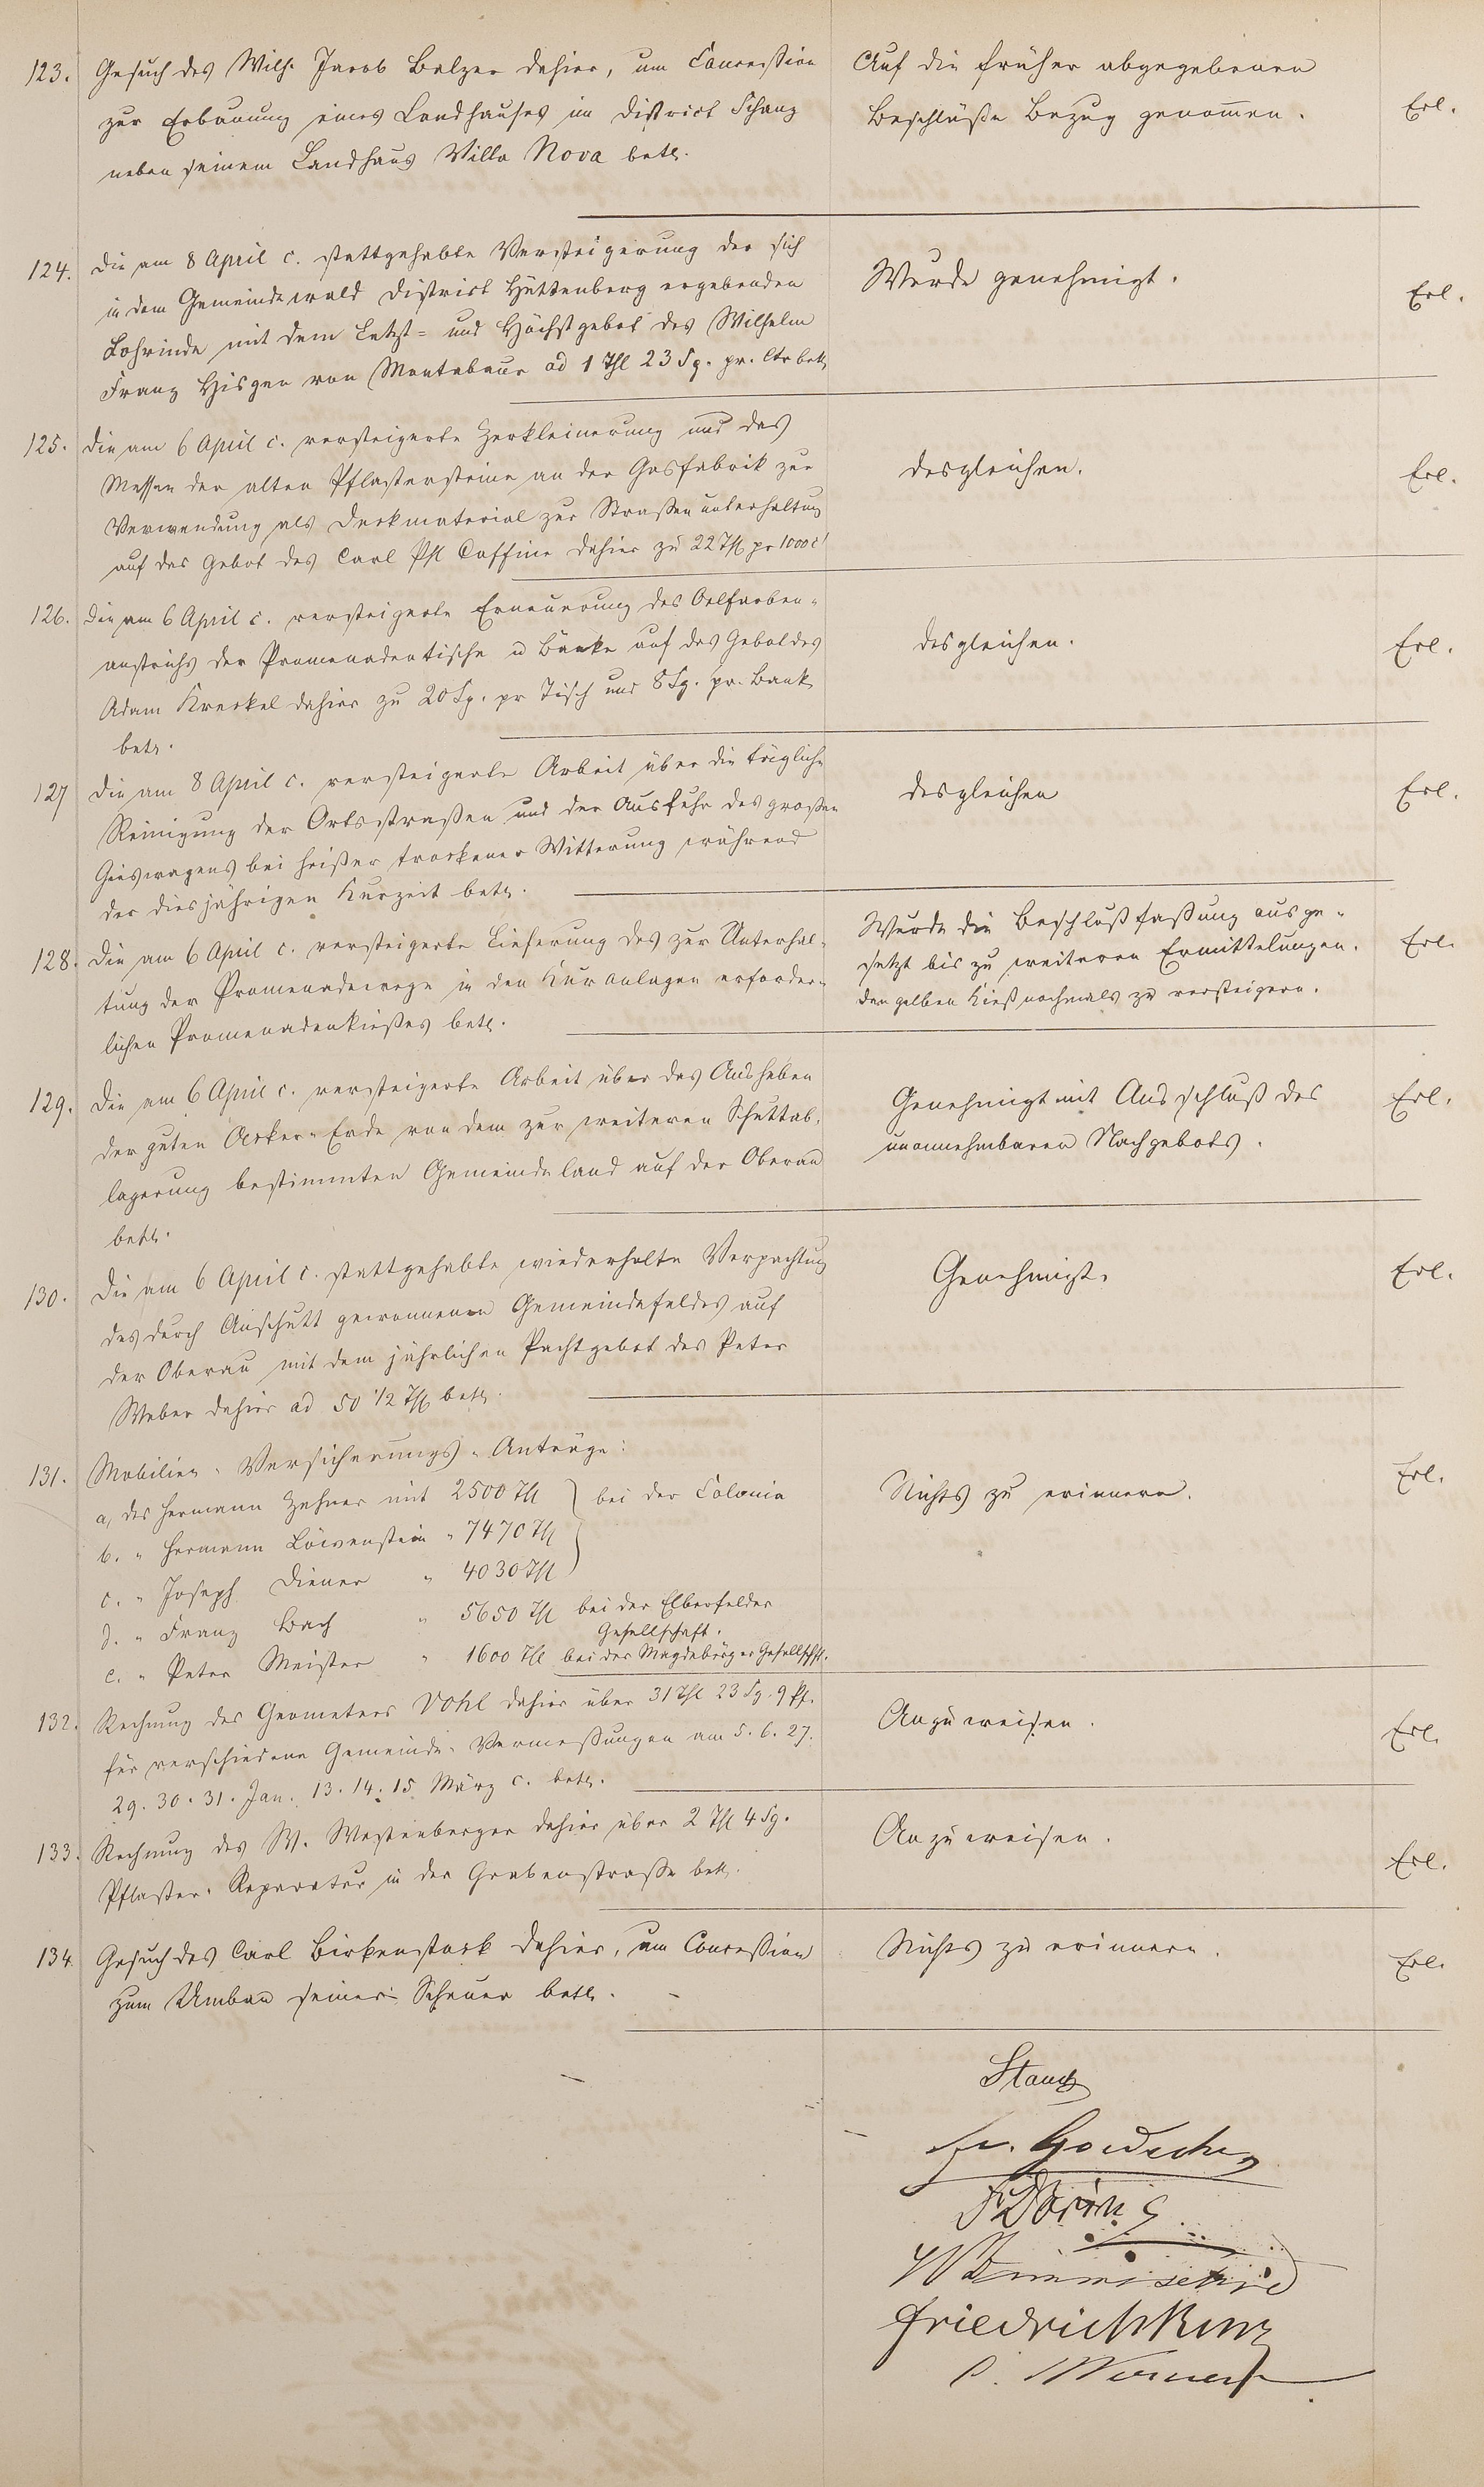 123. Gesuch des Wilh. Jacob Balzer dahier, um Concession
zur Erbauung eines Landhauses im District Schanz
neben seinem Landhaus Villa Nova betr.
Auf die früher abgegebenen
Beschlüße Bezug genom̄en.
Erl.
124. Die am 8 April c. stattgehabte Versteigerung der sich
in dem Gemeindewald District Hüttenberg ergebenden
Lohrinde mit dem Letzt= und Höchstgebot des Wilhelm
Franz Hisgen von Montabaur ad 1 Thl 23 Sg. pr. Ctr betr
Wurde genehmigt.
Erl.
125. Die am 6 April c. versteigerte Zerkleinerung und das
Messen der alten Pflastersteine an der Gasfabrik zur
Verwendung als Deckmaterial zur Straßenunterhaltung
auf das Gebot des Carl Phl Caffine dahier zu 22 Thl pr 1000 c'
desgleichen.
Erl.
126. Die am 6 April c. versteigerte Erneuerung des Oelfarben-
anstrichs der Promenadentische u Bänke auf das Gebot des
Adam Kreckel dahier zu 20 Sg. pr Tisch und 8 Sg. pr. Bank
betr.
desgleichen.
Erl.
127 Die am 8 April c. versteigerte Arbeit über die tägliche
Reinigung der Ortsstraßen und der Ausfuhr des großen
Gieswagens bei heißer trockener Witterung während
der diesjährigen Kurzeit betr.
desgleichen
Erl.
128. Die am 6 April c. versteigerte Lieferung des zur Unterhal-
tung der Promenadewege in den Kuranlagen erforder-
lichen Promenadenkießes betr.
Wurde die Beschlußfaßung ausge-
setzt bis zu weiteren Ermittelungen.
den gelben Kieß nochmals zu versteigern.
Erl.
129. Die am 6 April c. versteigerte Arbeit über das Ausheben
der guten Acker-Erde von dem zur weiteren Schuttab-
lagerung bestimmten Gemeindeland auf der Oberau
betr.
Genehmigt mit Ausschluß des
unannehmbaren Nachgebots.
Erl.
130. Die am 6 April c. stattgehabte wiederholte Verpachtung
des durch Anschutt gewonnenen Gemeindefeldes auf
der Oberau mit dem jährlichen Pachtgebot des Peter
Weber dahier ad 50 1/2 Thl betr.
Genehmigt.
Erl.
131. Mobilien-Versicherungs-Anträge:
a, des Hermann Zehner mit 2500 Thl } bei der Colonia
b. " Hermann Löwenstein " 7470 Thl
c. " Joseph Diener " 4030 Thl
d. " Franz Bach " 5650 Thl bei der Elberfelder
Gesellschaft.
e. " Peter Meister " 1600 Thl bei der Magdeburger Gesellschft.
Nichts zu erinnern.
Erl.
132. Rechnung des Geometers Vohl dahier über 31 Thl 23 Sg. 9 Pf.
für verschiedene Gemeinde-Vermeßungen am 5. 6. 27.
29. 30. 31. Jan. 13. 14. 15 März c. betr.
Anzuweisen.
Erl.
133. Rechnung des W. Westenberger dahier über 2 Thl 4 Sg.
Pflaster-Reparatur in der Grabenstraße betr.
Anzuweisen.
Erl.
134 Gesuch des Carl Birkenstock dahier, um Concession
zum Umbau seiner Scheuer betr.
Nichts zu erinnern.
Erl.
Fr.
F Döring
Friedrich Kunz